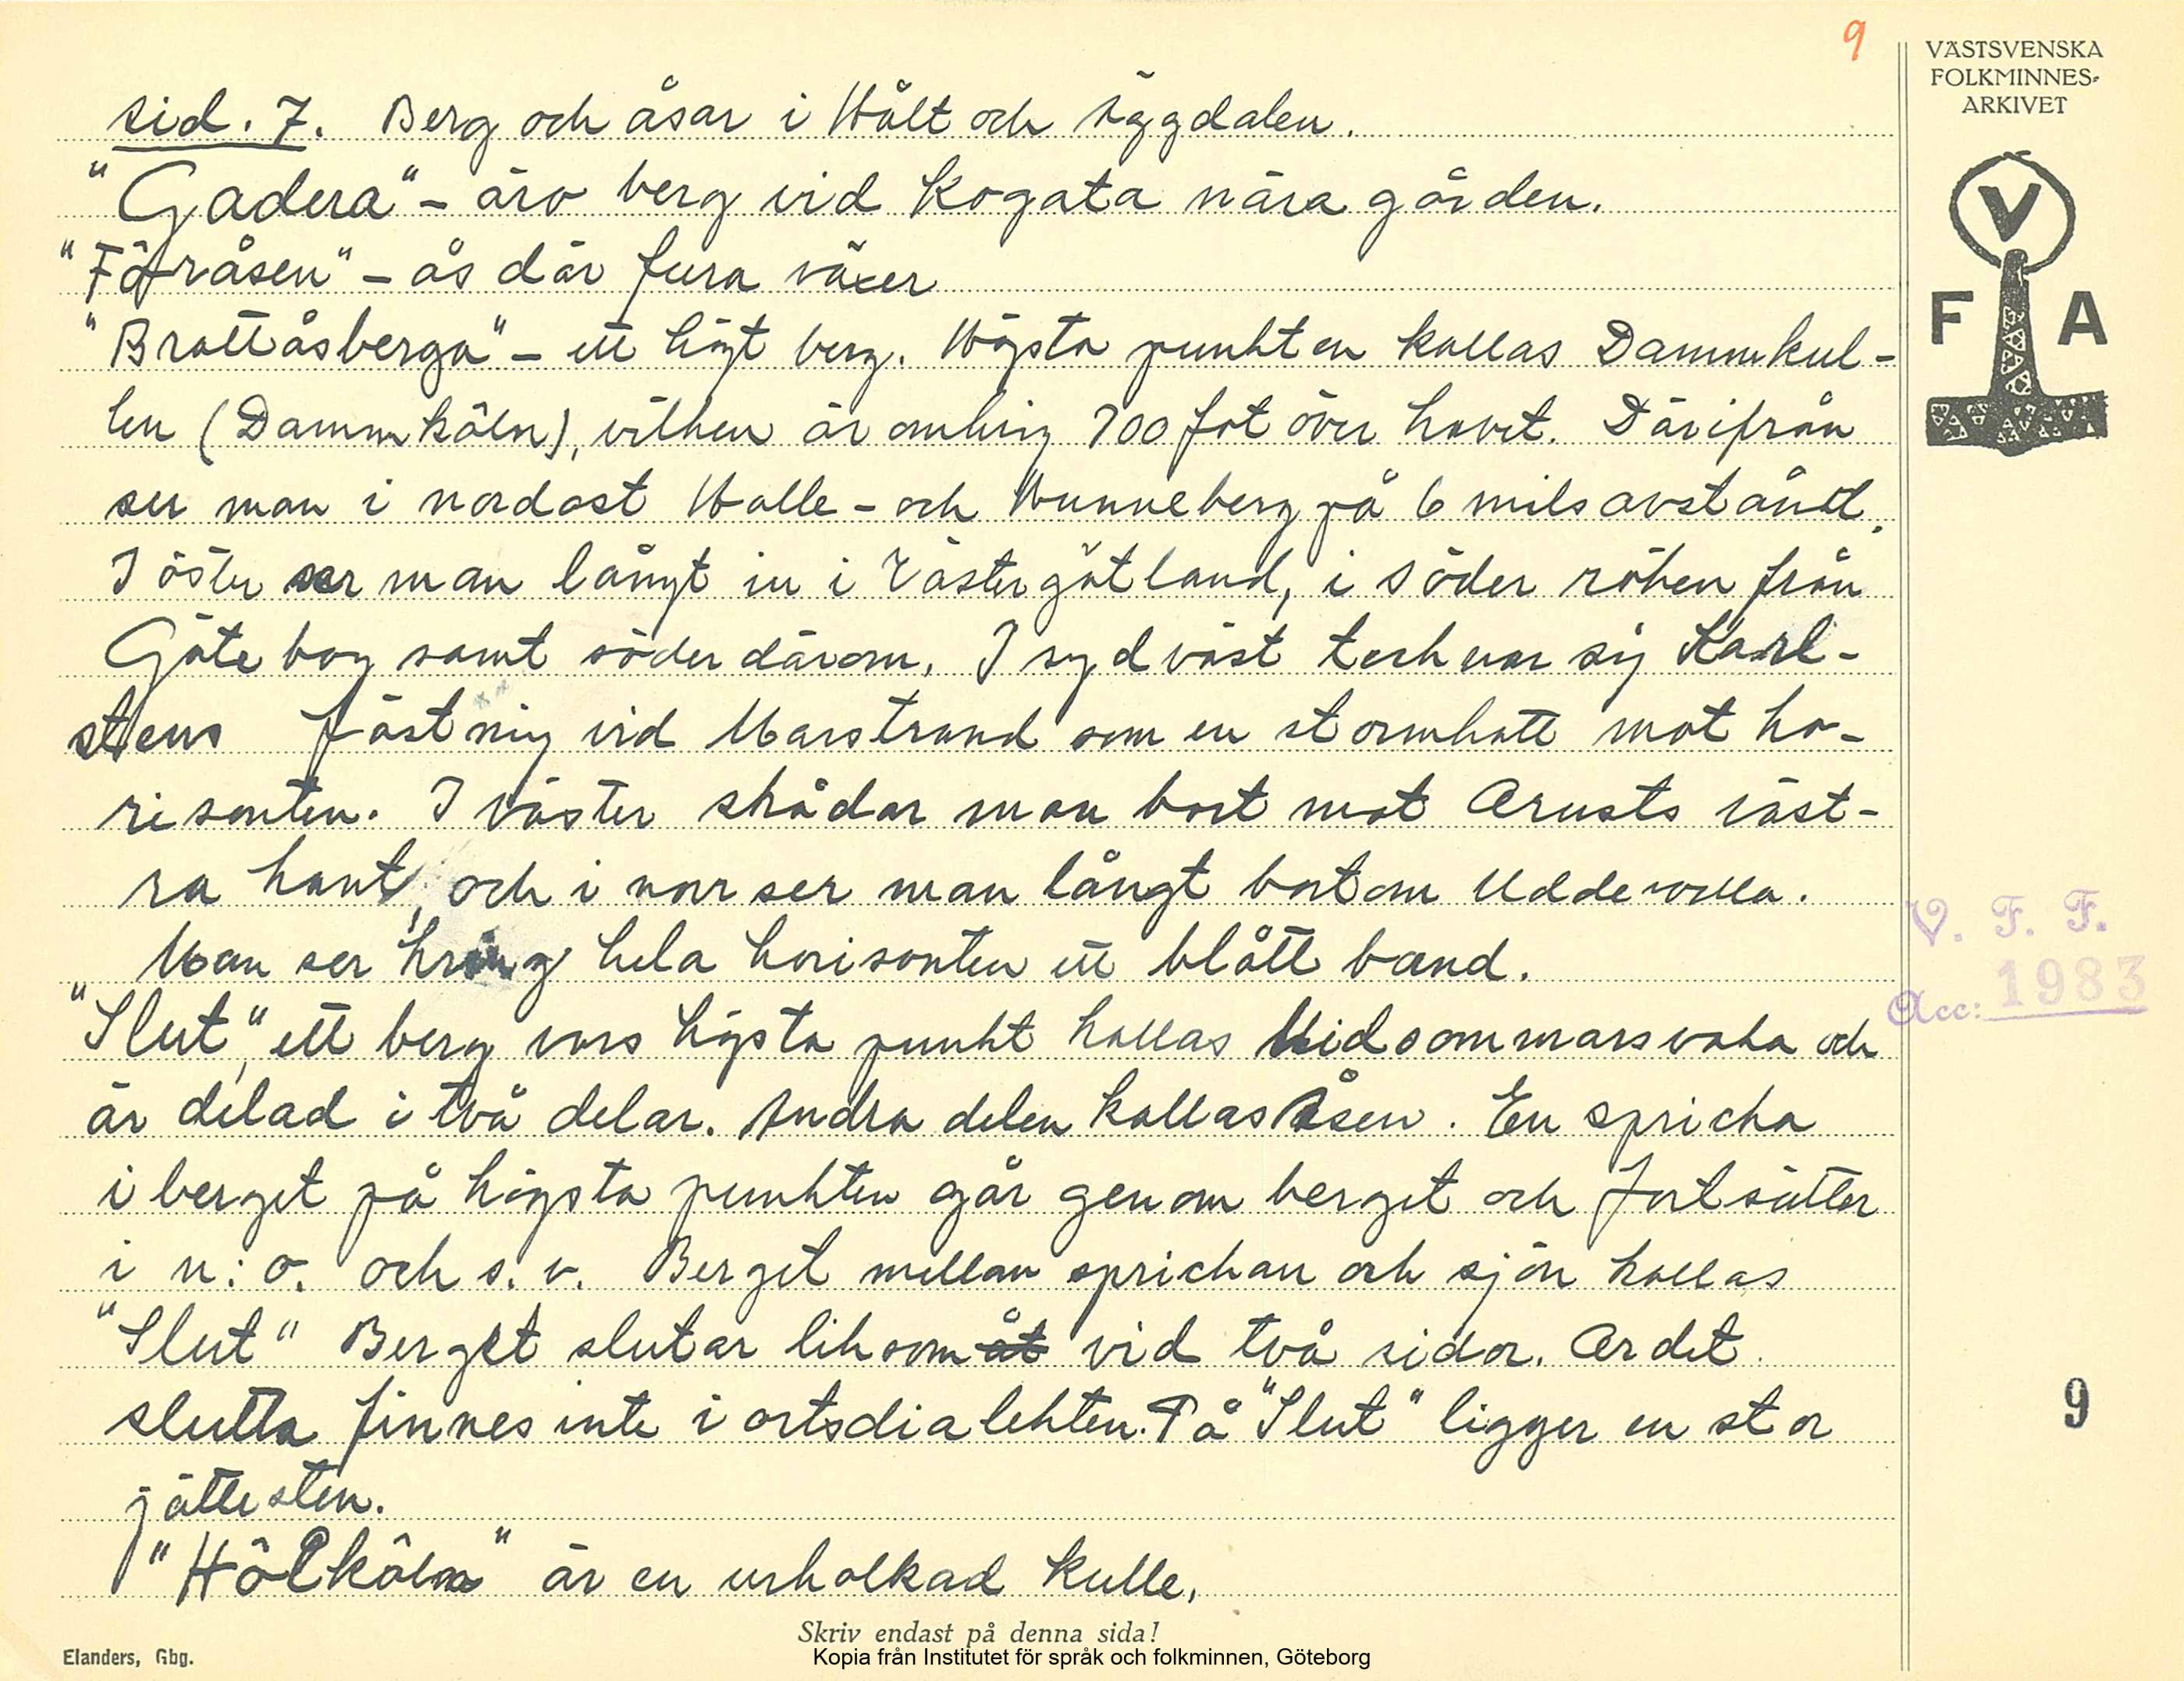 9
VÄSTSVENSKA
FOLKMINNES-
ARKIVET
V
F A
sid. 7. Berg och åsar i Hålt och Äggdalen.
"Gadera" - äro berg vid Kogata nära gården.
"Fôråsen" - ås där fura växer
"Brattåsberga" - ett högt berg. Högsta punkten kallas Dammkul-
len (Dammkôln), vilken är omkring 700 fot över havet. Därifrån
ser man i nordost Halle- och Hunneberg på 6 mils avstånd.
I öster ser man långt in i Västergötland, i söder röken från
Göteborg samt söder därom. I sydväst tecknar sig Karl-
stens fästning vid Marstrand som en stormhatt mot ho-
risonten. I väster skådar man bort mot Orusts väst-
ra kant, och i norr ser man långt bortom Uddevalla.
Man ser kring hela horisonten ett blått band.
"Slut", ett berg vars högsta punkt kallas Midsommarsvaka och
är delad i två delar. Andra delen kallas Åsen. En spricka
i berget på högsta punkten går genom berget och fortsätter
i n:o. och s.v. Berget mellan sprickan och sjön kallas
"Slut" Berget slutar liksom åt vid två sidor. Ordet
slutta finnes inte i ortsdialekten. På "Slut" ligger en stor
jättesten.
"Hôlkôln" är en urholkad kulle.
V. F. F.
Acc: 1983
9
Skriv endast på denna sida!
Elanders, Gbg.
Kopia från Institutet för språk och folkminnen, Göteborg